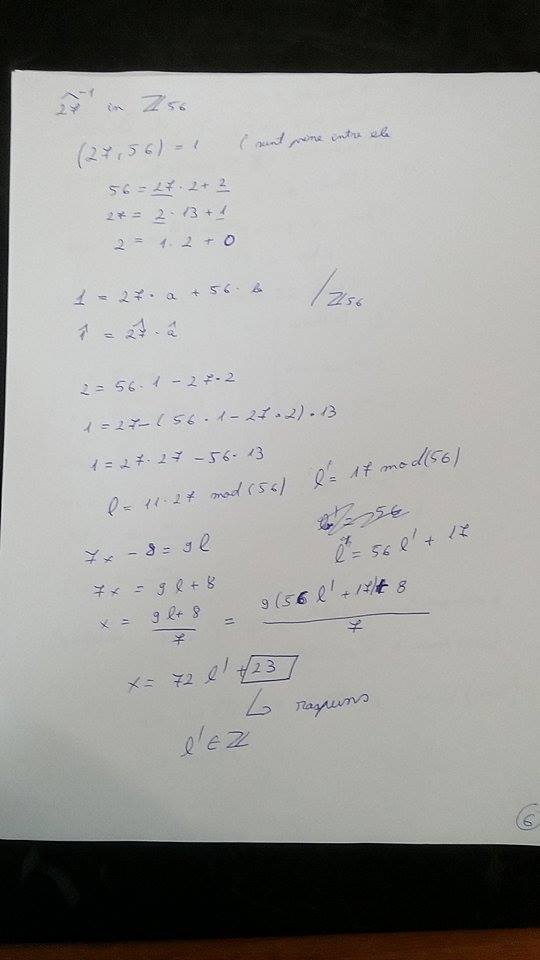 27̂⁻¹ in ℤ56
(27, 56) = 1 ( sunt prime intre ele
56 = 27 · 2 + 2
27 = 2 · 13 + 1
2 = 1 · 2 + 0
1 = 27 · a + 56 · b /ℤ56
1̂ = 27̂ · â
2 = 56 · 1 − 27 · 2
1 = 27 − (56 · 1 − 27 · 2) · 13
1 = 27 · 27 − 56 · 13
l = 11 · 27 mod (56) l' = 17 mod (56)
7x − 8 = 9l l = 56 l' + 17
7x = 9l + 8
x = (9l + 8)/7 = (9(56 l' + 17) + 8)/7
x = 72 l' + 23
↳ raspuns
l' ∈ ℤ
6